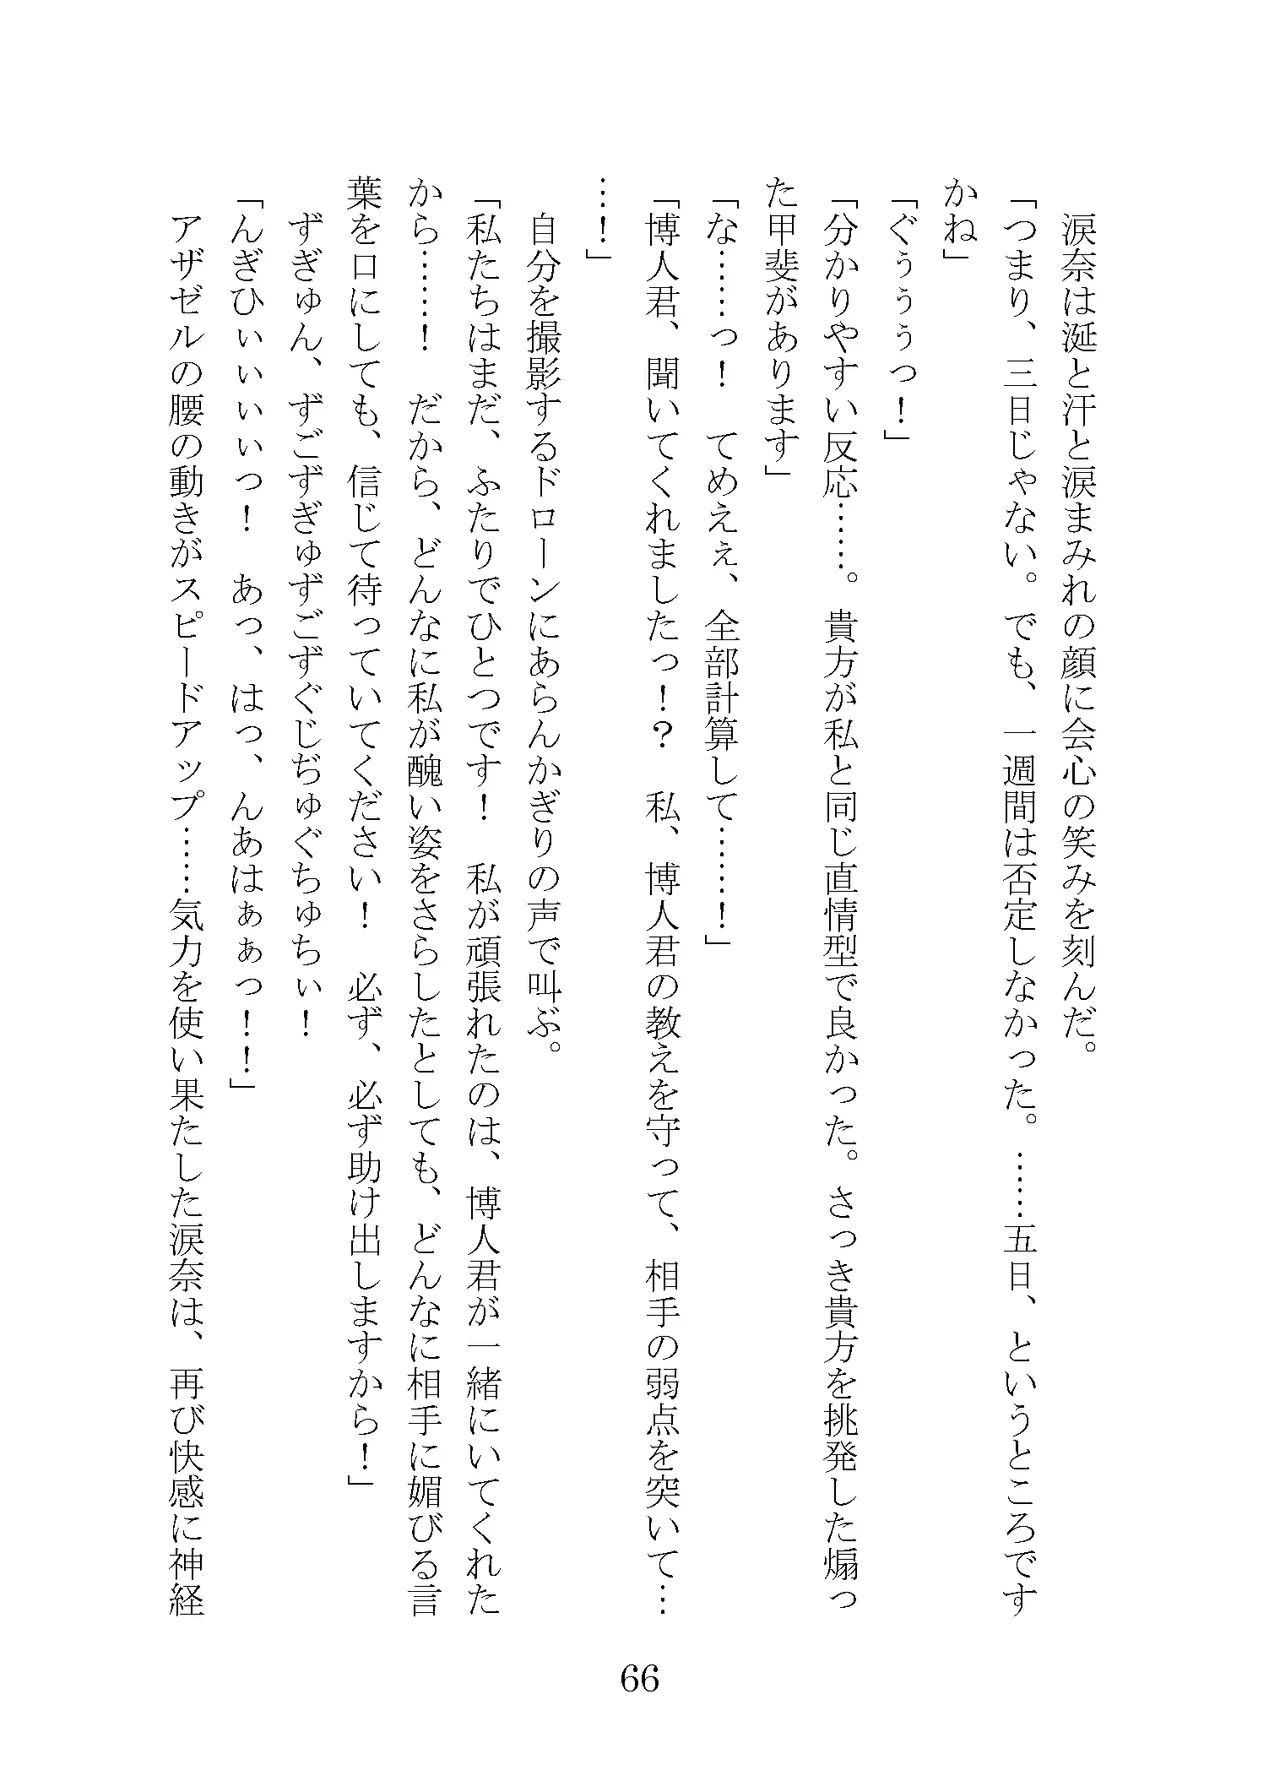 涙奈は涎と汗と涙まみれの顔に会心の笑みを刻んだ。
「つまり、三日じゃない。でも、一週間は否定しなかった。……五日、というところです
かね」
「ぐぅぅぅっ！」
「分かりやすい反応……。貴方が私と同じ直情型で良かった。さっき貴方を挑発した煽っ
た甲斐があります」
「な……っ！　てめえぇ、全部計算して……！」
「博人君、聞いてくれましたっ！？　私、博人君の教えを守って、相手の弱点を突いて…
…！」
自分を撮影するドローンにあらんかぎりの声で叫ぶ。
「私たちはまだ、ふたりでひとつです！　私が頑張れたのは、博人君が一緒にいてくれた
から……！　だから、どんなに私が醜い姿をさらしたとしても、どんなに相手に媚びる言
葉を口にしても、信じて待っていてください！　必ず、必ず助け出しますから！」
ずぎゅん、ずごずぎゅずごずぐじぢゅぐちゅちぃ！
「んぎひぃぃぃぃっ！　あっ、はっ、んあはぁぁっ！！」
アザゼルの腰の動きがスピードアップ……気力を使い果たした涙奈は、再び快感に神経
66